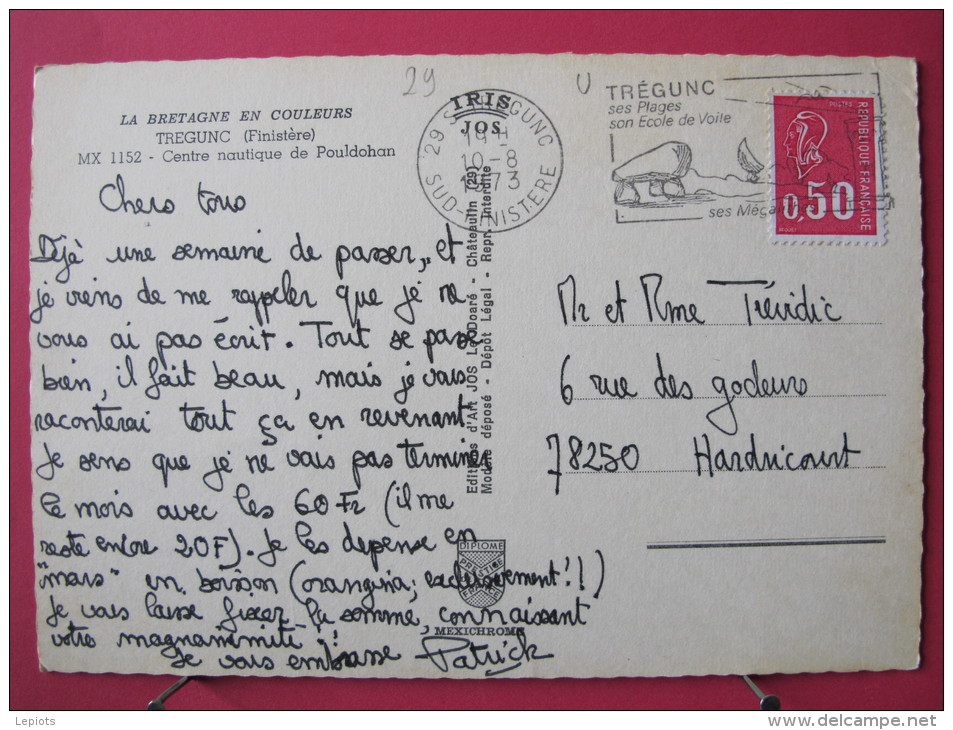 29
U
LA BRETAGNE EN COULEURS
TREGUNC (Finistère)
MX 1152 - Centre nautique de Pouldohan
IRIS
JOS
29 TRÉGUNC
19 H
10-8
1973
SUD-FINISTERE
TRÉGUNC
ses Plages
son Ecole de Voile
ses
POSTES
REPUBLIQUE FRANÇAISE
0,50
Chers tous
Déjà une semaine de passer, et
je viens de me rappeler que je ne
vous ai pas écrit. Tout se passe
bien, il fait beau, mais je vais
raconterai tout ça en revenant
Je sens que je ne vais pas terminer
le mois avec les 60 Fr (il me
reste encore 20F). Je les depense en
"mars" en boisson (orangina, exclusivement!!)
Je vous laisse fixer la somme, connaissant
votre magnanimité !
Je vous embrasse Patrick
Editions d'Art JOS Le Doaré - Châteaulin (29)
Modèle déposé - Dépôt Légal - Repr. Interdite
DIPLOME
PRESTIGE
FRANCE
MEXICHROME
Mr et Mme Trévidic
6 rue des godeurs
78250 Hardricourt
Lepiots
http://www.delcampe.net